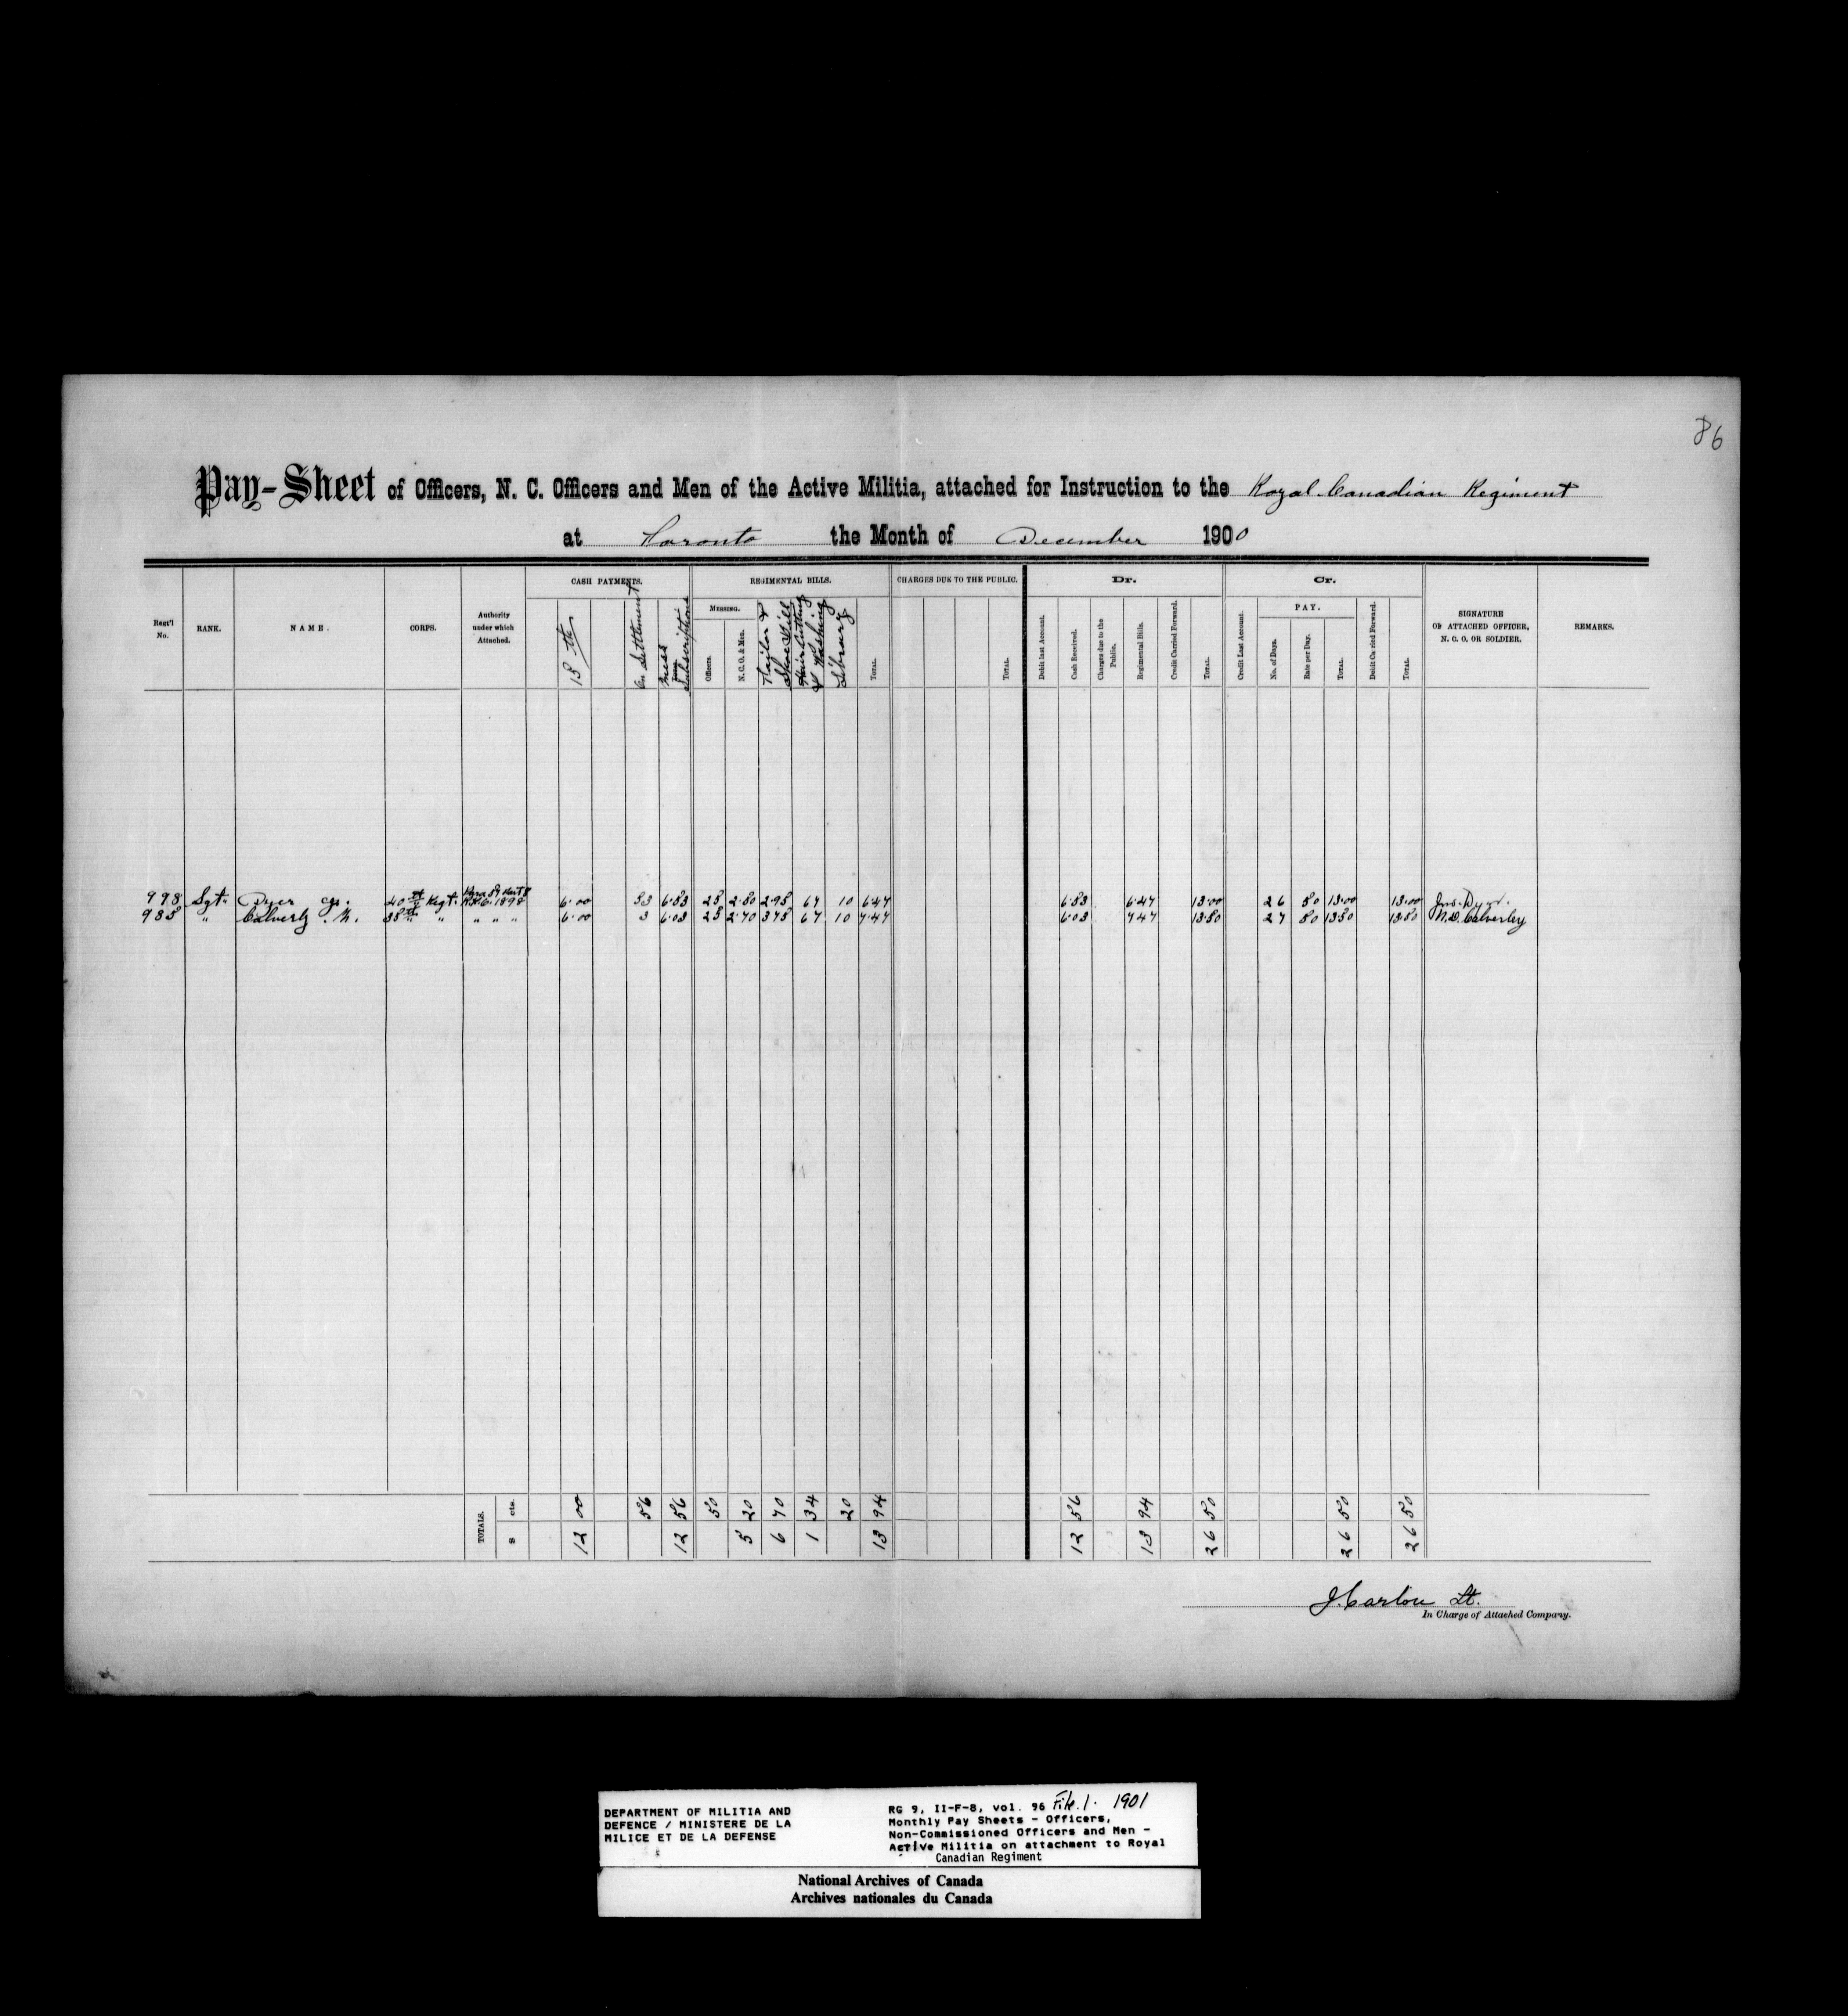 86
Pay-Sheet of Officers, N. C. Officers and Men of the Active Militia, attached for Instruction to the Royal Canadian Regiment
at Toronto the Month of December 1900
Regt'l No.
RANK.
NAME.
CORPS.
Authority under which Attached.
CASH PAYMENTS.
15th
On Settlement
Mess Subscriptions
REGIMENTAL BILLS.
MESSING.
Officers.
N. C. O. & Men.
Tailor & Shoe Bill
Hair Cutting & Washing
Library
TOTAL.
CHARGES DUE TO THE PUBLIC.
TOTAL.
Dr.
Debit last Account.
Cash Received.
Charges due to the Public.
Regimental Bills.
Credit Carried Forward.
TOTAL.
Cr.
Credit Last Account.
PAY.
No. of Days.
Rate per Day.
TOTAL.
Debit Carried Forward.
TOTAL.
SIGNATURE OF ATTACHED OFFICER, N. C. O. OR SOLDIER.
REMARKS.
998 Sgt. Dyer 40th Regt. 1898 6.00 53 6.53 25 2.50 2.95 67 10 6.47 6.53 6.47 13.00 26 50 13.00 13.00 Jno. Dyer.
985 " Calverly . N. 35th " " " " 6.00 3 6.03 25 2.70 3.75 67 10 7.47 6.03 7.47 13.50 27 50 13.50 13.50 N.D. Calverley
TOTALS. $ cts.
12 00 56 12 56 50 5 20 6 70 1 34 20 13 94 12 56 13 94 26 50 26 50 26 50
J. Carlow Lt.
In Charge of Attached Company.
DEPARTMENT OF MILITIA AND
DEFENCE / MINISTERE DE LA
MILICE ET DE LA DEFENSE
RG 9, II-F-8, vol. 96 File.1. 1901
Monthly Pay Sheets - Officers,
Non-Commissioned Officers and Men -
Active Militia on attachment to Royal
Canadian Regiment
National Archives of Canada
Archives nationales du Canada